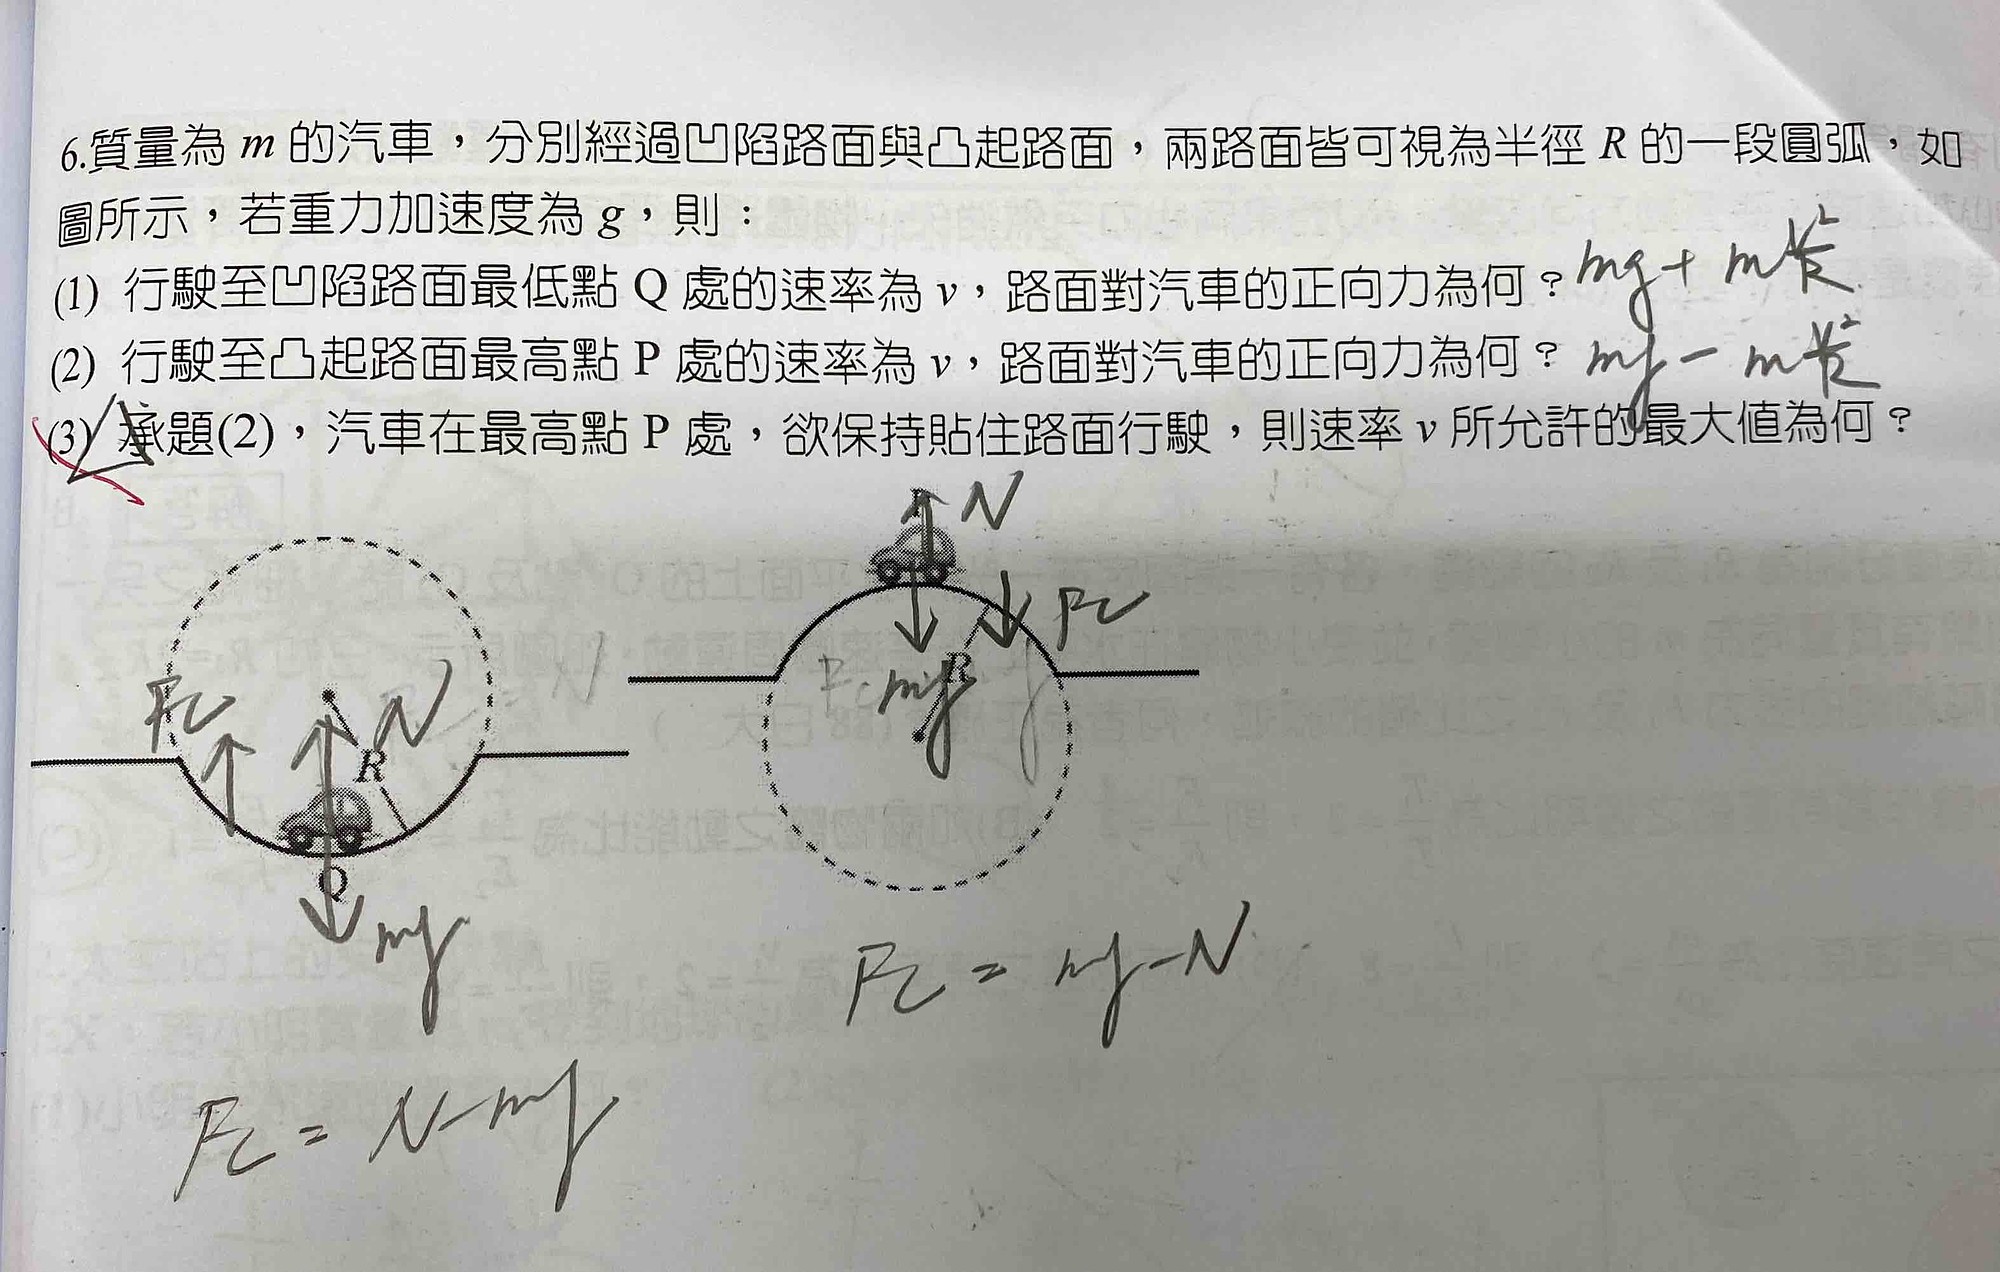 6.質量為 m 的汽車，分別經過凹陷路面與凸起路面，兩路面皆可視為半徑 R 的一段圓弧，如
圖所示，若重力加速度為 g，則：
(1) 行駛至凹陷路面最低點 Q 處的速率為 v，路面對汽車的正向力為何？ mg + m v²/R
(2) 行駛至凸起路面最高點 P 處的速率為 v，路面對汽車的正向力為何？ mg - m v²/R
(3) 承題(2)，汽車在最高點 P 處，欲保持貼住路面行駛，則速率 v 所允許的最大值為何？
N
Fc
R
mg
Fc
N
R
Q
mg
Fc = mg - N
Fc = N - mg